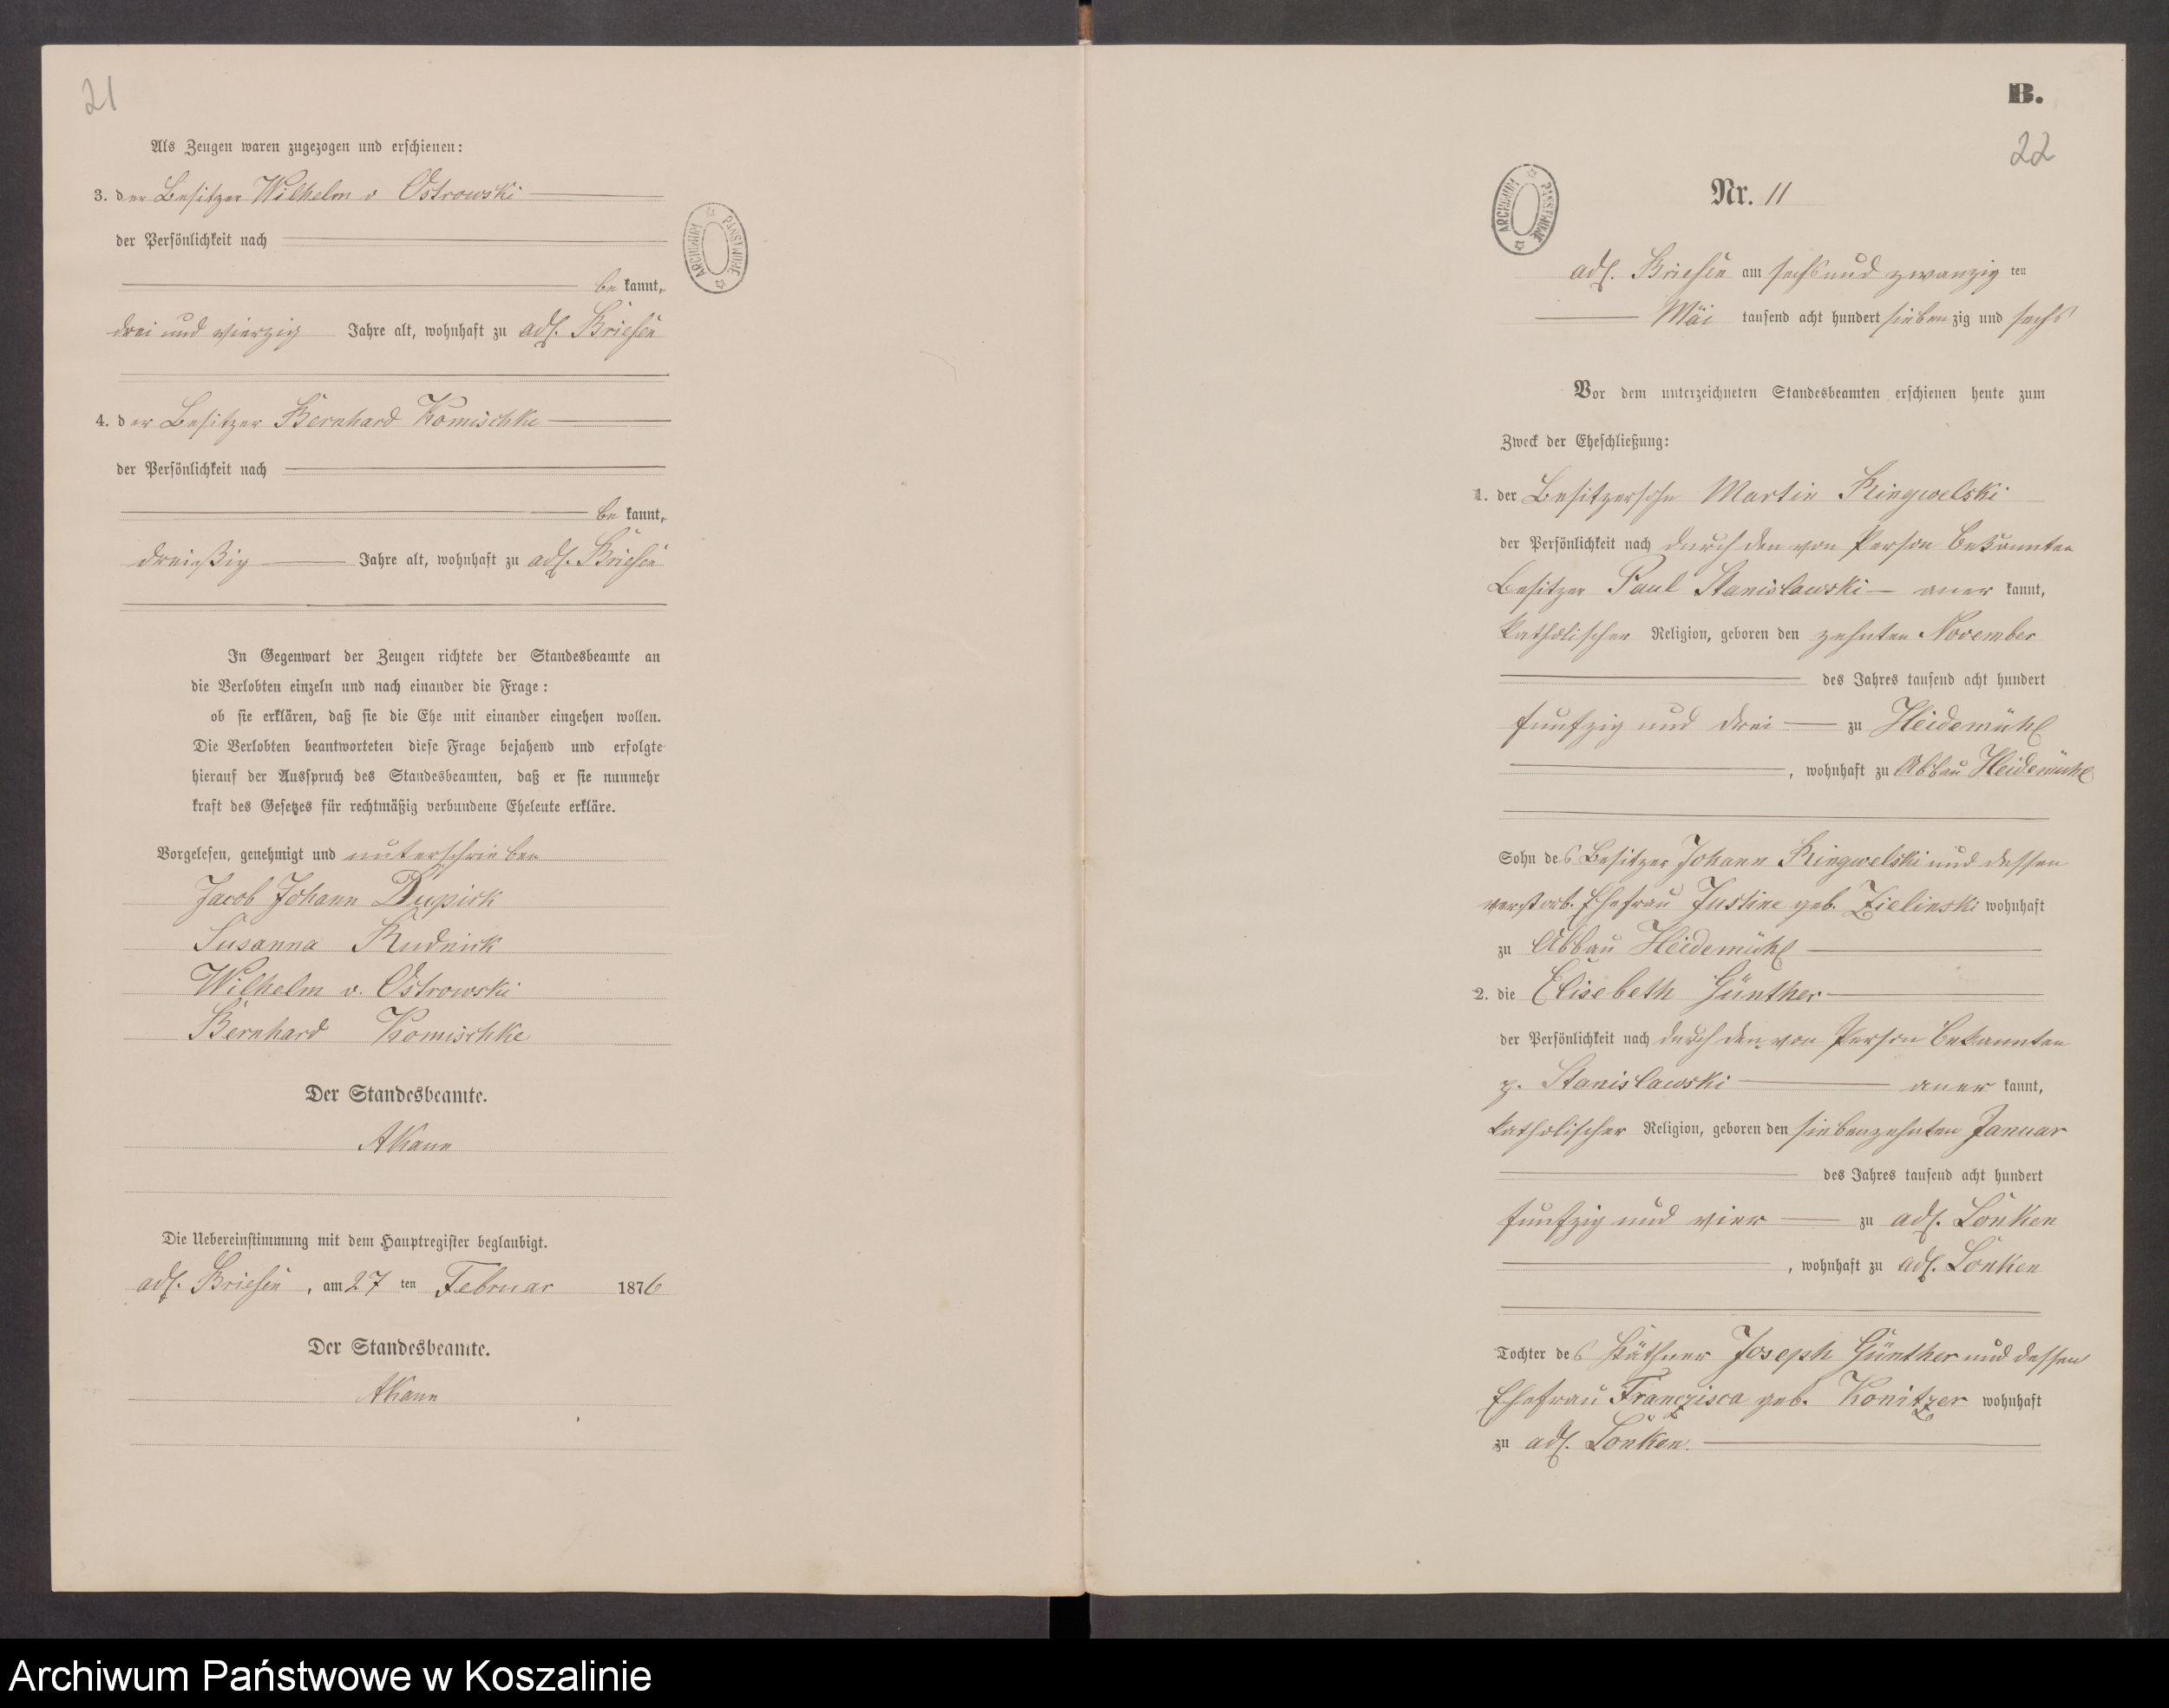 21
Als Zeugen waren zugezogen und erschienen:
3. der Besitzer Wilhelm v Ostrowski
der Persönlichkeit nach
be kannt,
drei und vierzig Jahre alt, wohnhaft zu adl. Briesen
4. der Besitzer Bernhard Komischke
der Persönlichkeit nach
be kannt,
dreißig Jahre alt, wohnhaft zu adl. Briesen
In Gegenwart der Zeugen richtete der Standesbeamte an
die Verlobten einzeln und nach einander die Frage:
ob sie erklären, daß sie die Ehe mit einander eingehen wollen.
Die Verlobten beantworteten diese Frage bejahend und erfolgte
hierauf der Ausspruch des Standesbeamten, daß er sie nunmehr
kraft des Gesetzes für rechtmäßig verbundene Eheleute erkläre.
Vorgelesen, genehmigt und unterschrieben
Jacob Johann Dupick
Susanna Rudnick
Wilhelm v. Ostrowski
Bernhard Komischke
Der Standesbeamte.
AKann
Die Uebereinstimmung mit dem Hauptregister beglaubigt.
adl. Briesen, am 27 ten Februar 1876
Der Standesbeamte.
AKann
ARCHIWUM PAŃSTWOWE
B.
22
ARCHIWUM PAŃSTWOWE
Nr. 11
adl. Briesen am sechs und zwanzig ten
Mai tausend acht hundert siebenzig und sechs
Vor dem unterzeichneten Standesbeamten erschienen heute zum
Zweck der Eheschließung:
1. der Besitzersohn Martin Ringwelski
der Persönlichkeit nach durch den von Person bekannten
Besitzer Paul Stanislawski aner kannt,
katholischer Religion, geboren den zehnten November
des Jahres tausend acht hundert
funfzig und drei zu Heidemühl
, wohnhaft zu Abbau Heidemühl
Sohn des Besitzer Johann Ringwelski und dessen
verstorb. Ehefrau Justine geb. Zielinski wohnhaft
zu Abbau Heidemühl
2. die Elisebeth Günther
der Persönlichkeit nach durch den von Person bekannten
p. Stanislawski aner kannt,
katholischer Religion, geboren den siebenzehnten Januar
des Jahres tausend acht hundert
funfzig und vier zu adl. Lonken
, wohnhaft zu adl. Lonken
Tochter des Käthner Joseph Günther und dessen
Ehefrau Franczisca geb. Konitzer wohnhaft
zu adl. Lonken.
Archiwum Państwowe w Koszalinie